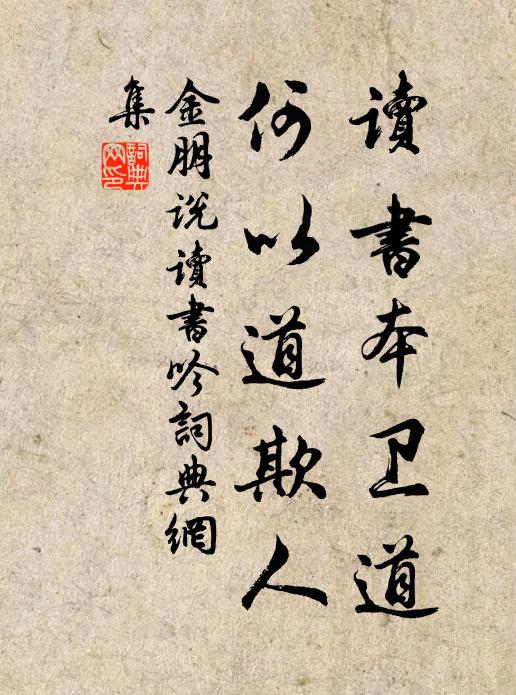 讀書本卫道
何以道欺人
金朋说讀書吟詞典網
集
詞典
网印